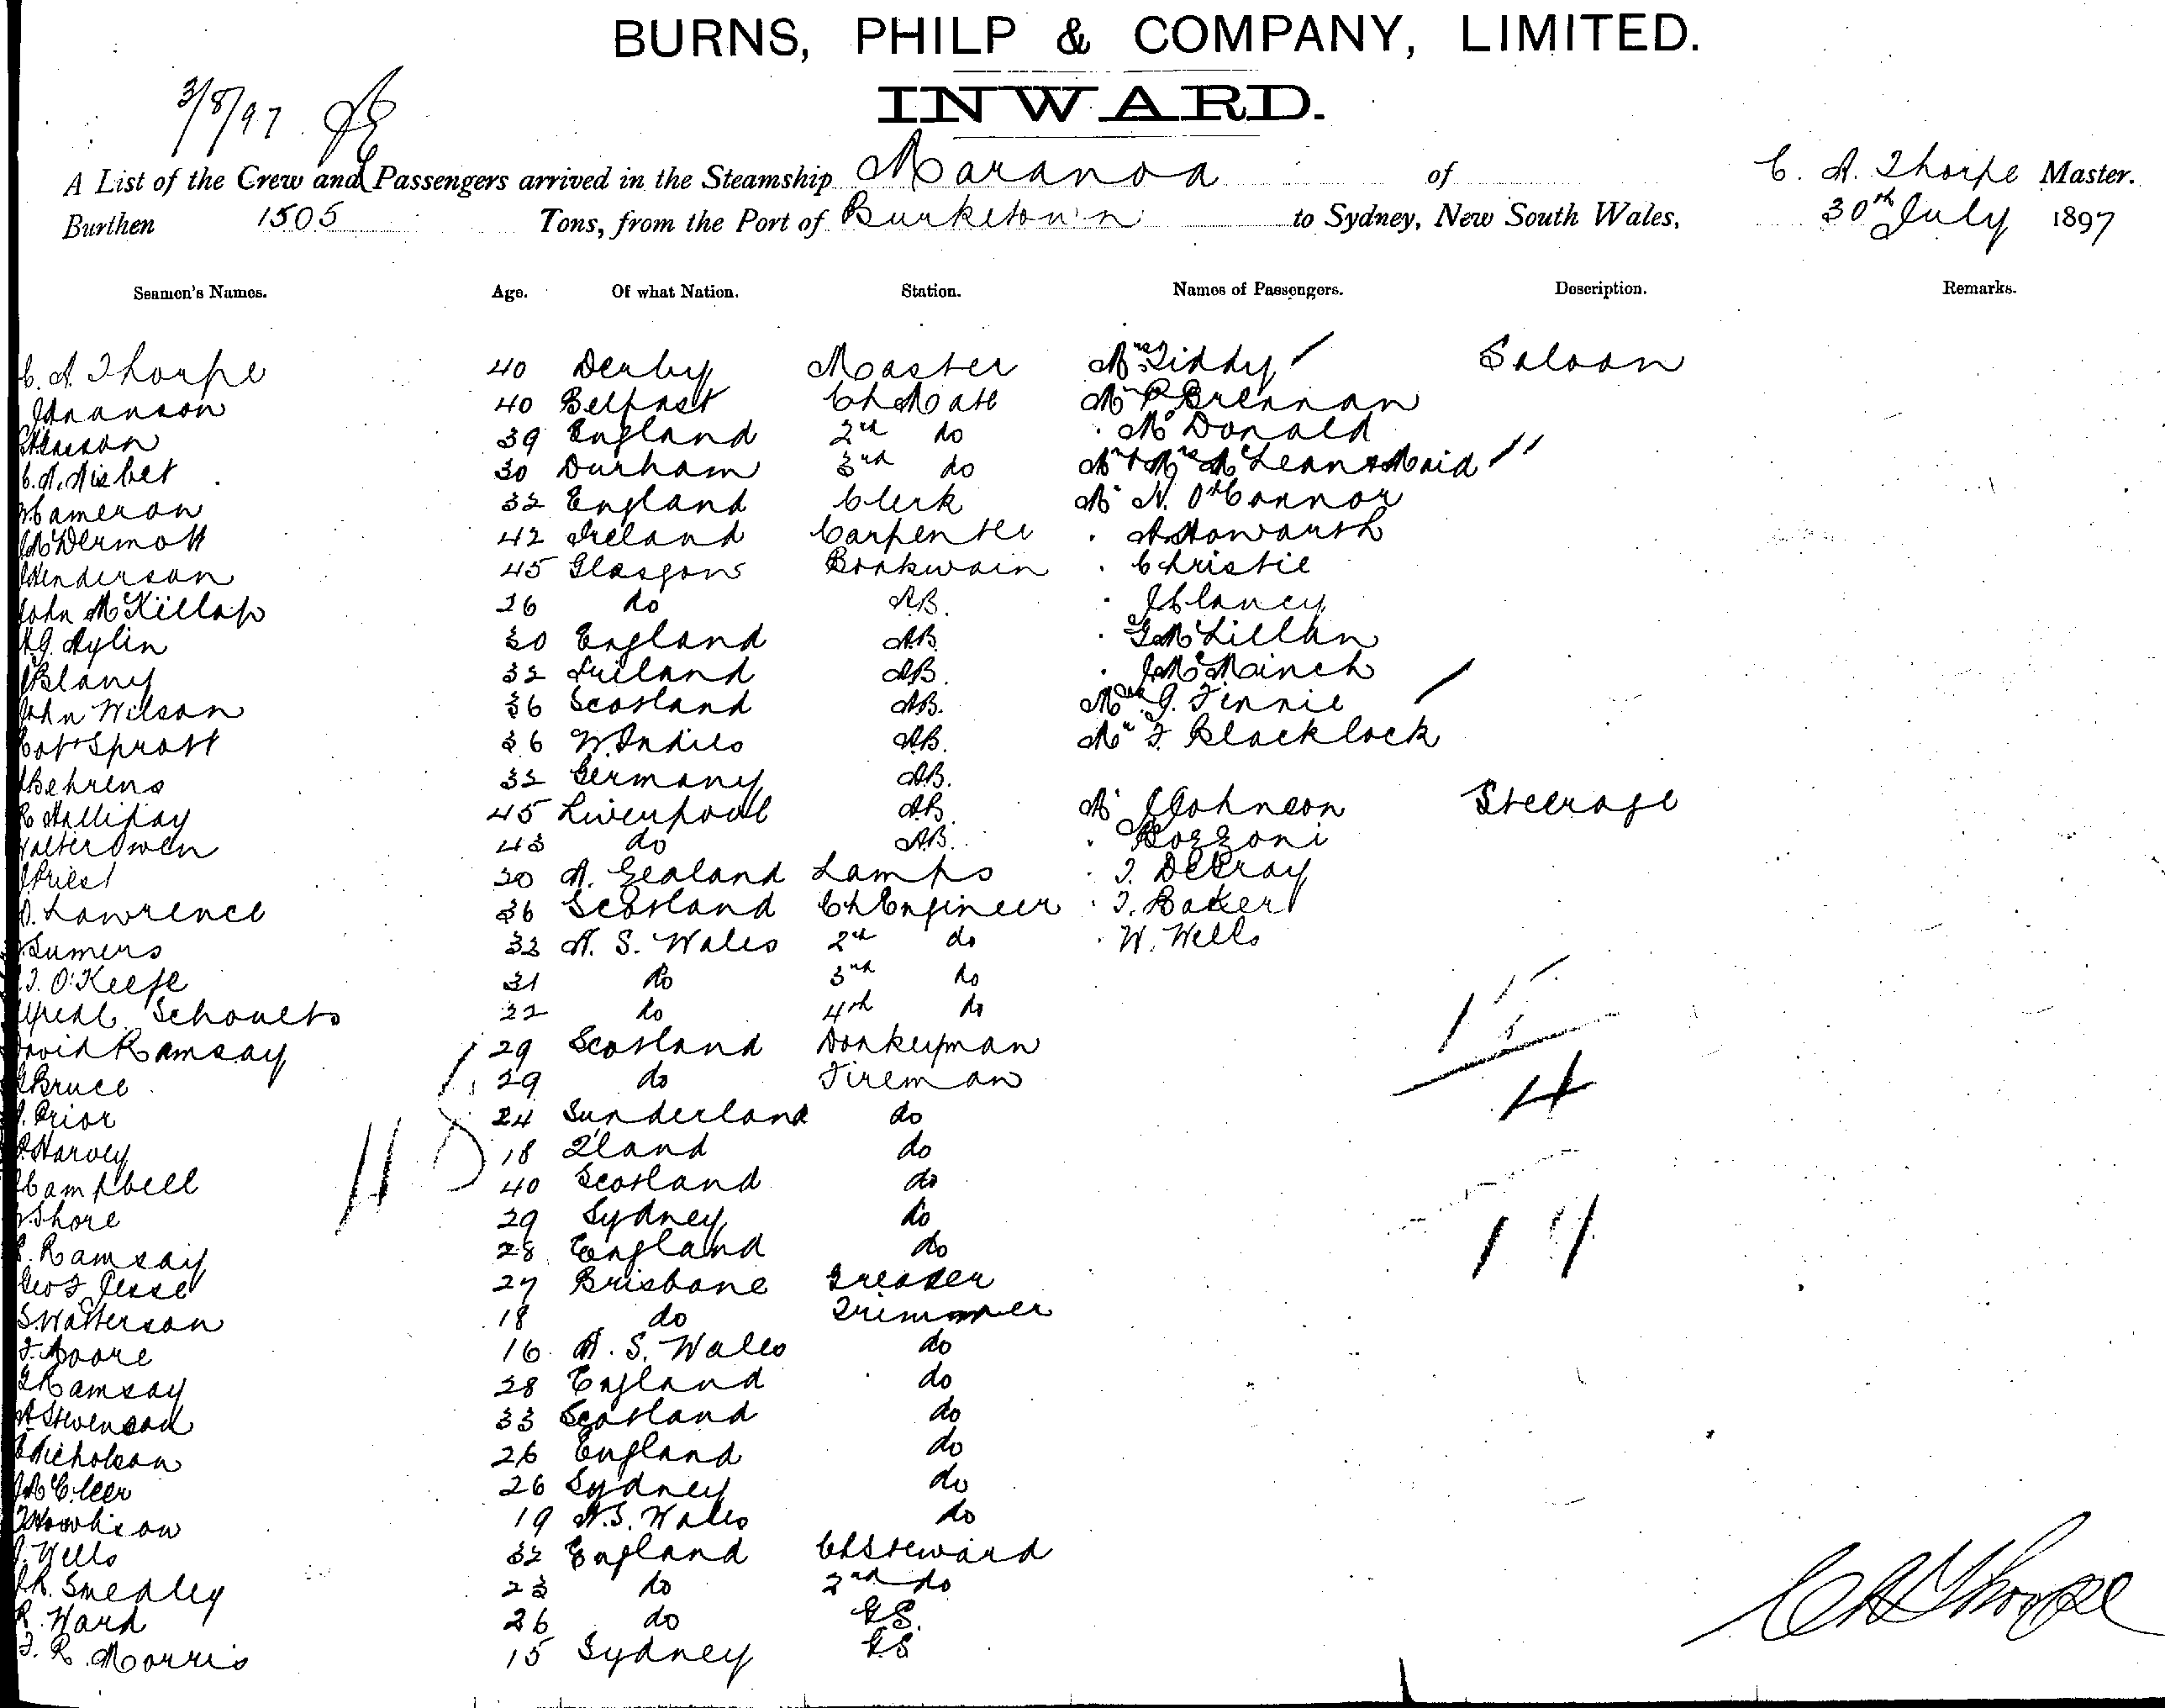 BURNS, PHILP & COMPANY, LIMITED.
INWARD.
3/8/97
A List of the Crew and Passengers arrived in the Steamship Maranoa of C. A. Thorpe Master.
Burthen 1505 Tons, from the Port of Burketown to Sydney, New South Wales, 30th July 1897
Seamen's Names. Age. Of what Nation. Station. Names of Passengers. Description. Remarks.
C. A. Thorpe 40 Derby Master Mrs Tiddy Saloon
40 Belfast Ch Mate Mr P Brennan
39 England 2nd do " McDonald
C. A. Nisbet 30 Durham 3rd do Mr & Mrs McLean & Maid
Cameron 32 England Clerk Mr N. O'Connor
McDermott 42 Ireland Carpenter " A Howarth
Henderson 45 Glasgow Boatswain " Christie
John McKillop 26 do AB. " J Clancy
A.G. Aylin 30 England AB. " G McLillan
Blany 32 Ireland AB. " J McMinch
John Wilson 36 Scotland AB. Mrs G. Finnie
Sprott 36 W. Indies AB. Mr F Blacklock
Behrens 32 Germany AB.
R Halliday 45 Liverpool AB. Mr J Johnson Steerage
Walter Owen 43 do AB. " Bozzoni
J Priest 20 N. Zealand Lamps " J. DeGray
D. Lawrence 36 Scotland Ch Engineer " J. Baker
Sumers 33 N. S. Wales 2nd do " W. Wells
J. O'Keefe 31 do 3rd do
Schoults 22 do 4th do
David Ramsay 29 Scotland Donkeyman
Bruce 29 do Fireman
Prior 24 Sunderland do
Harvey 18 Q'land do
Campbell 40 Scotland do
Shore 29 Sydney do
Ramsay 28 England do
Geo F Jesse 27 Brisbane Greaser
S. Watterson 18 do Trimmer
F. Moore 16 N. S. Wales do
G Ramsay 28 England do
A Stevenson 33 Scotland do
Nicholson 26 England do
26 Sydney do
Howlison 19 N.S. Wales do
J. Wells 32 England Ch Steward
J.R. Smedley 23 do 2nd do
R. Ward 26 do GS.
F. R. Morris 15 Sydney GS
15
4
19
C A Thorpe